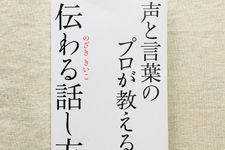 声と言葉の
プロが教える
伝わる話し方
のざききいこ